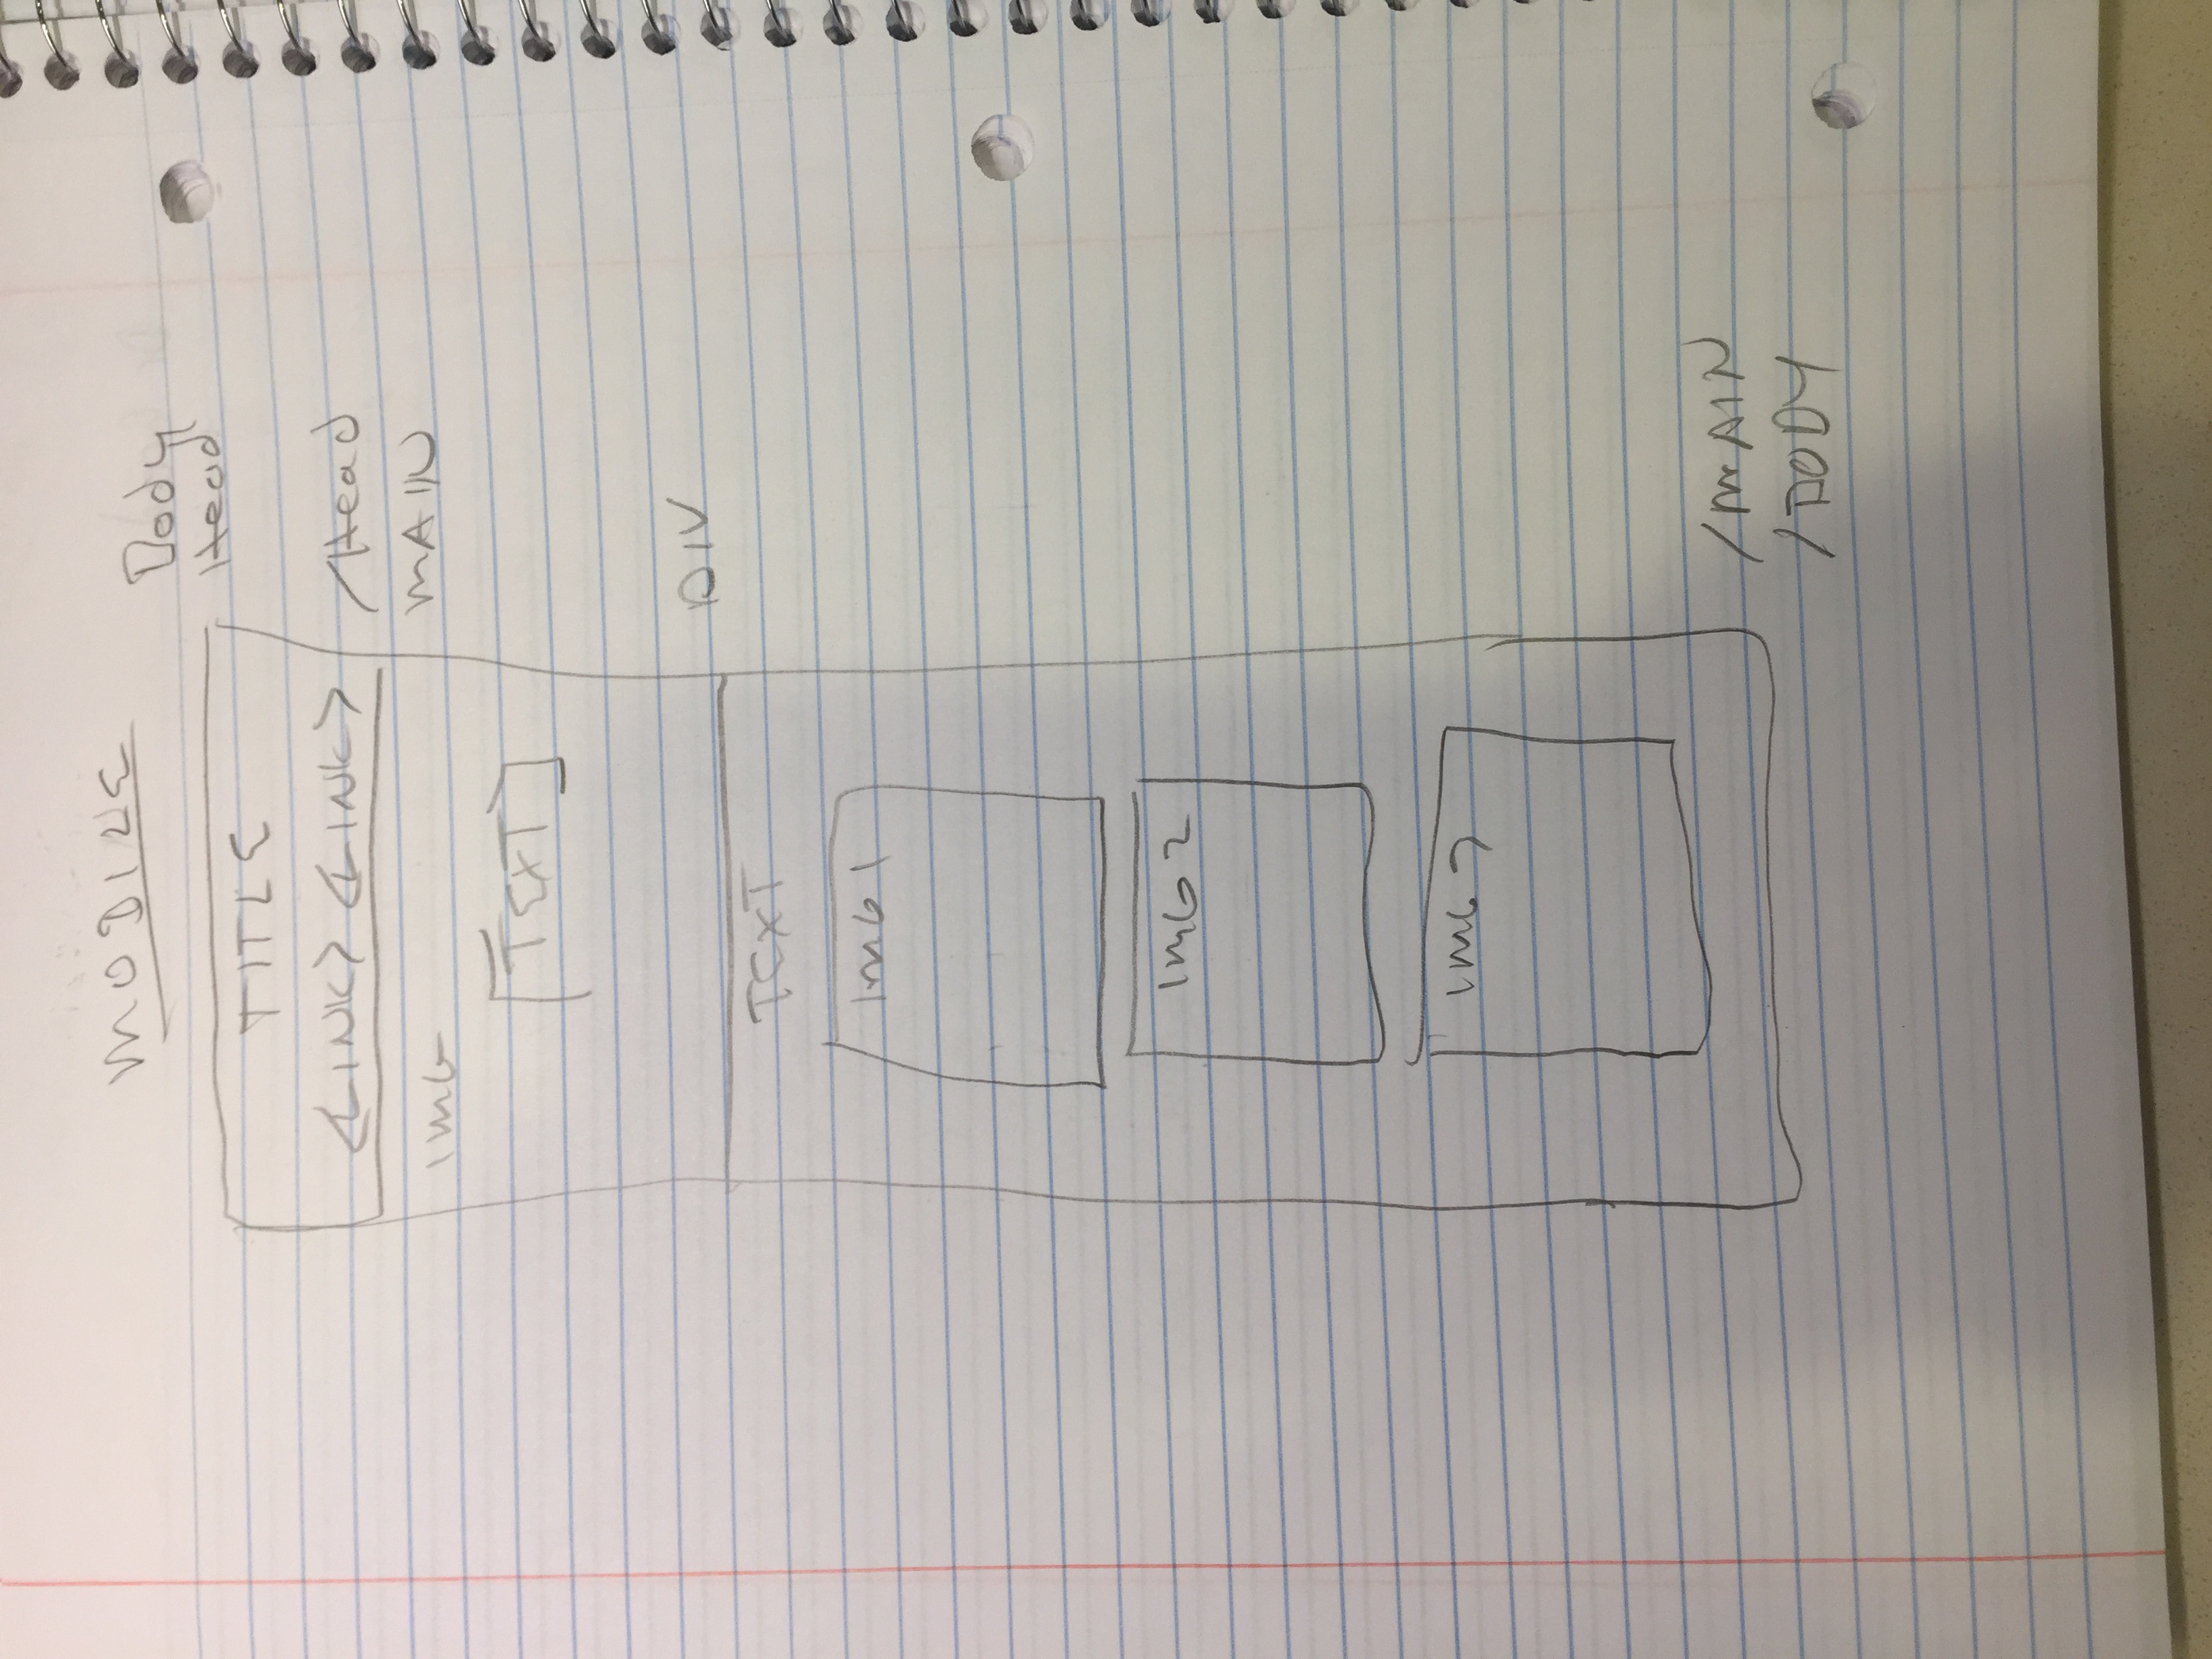 MOBILE
Body
Head
TITLE
<LINK> <LINK>
/Head
IMG
MAIN
[TEXT]
DIV
TEXT
IMG 1
IMG 2
IMG 3
/MAIN
/BODY